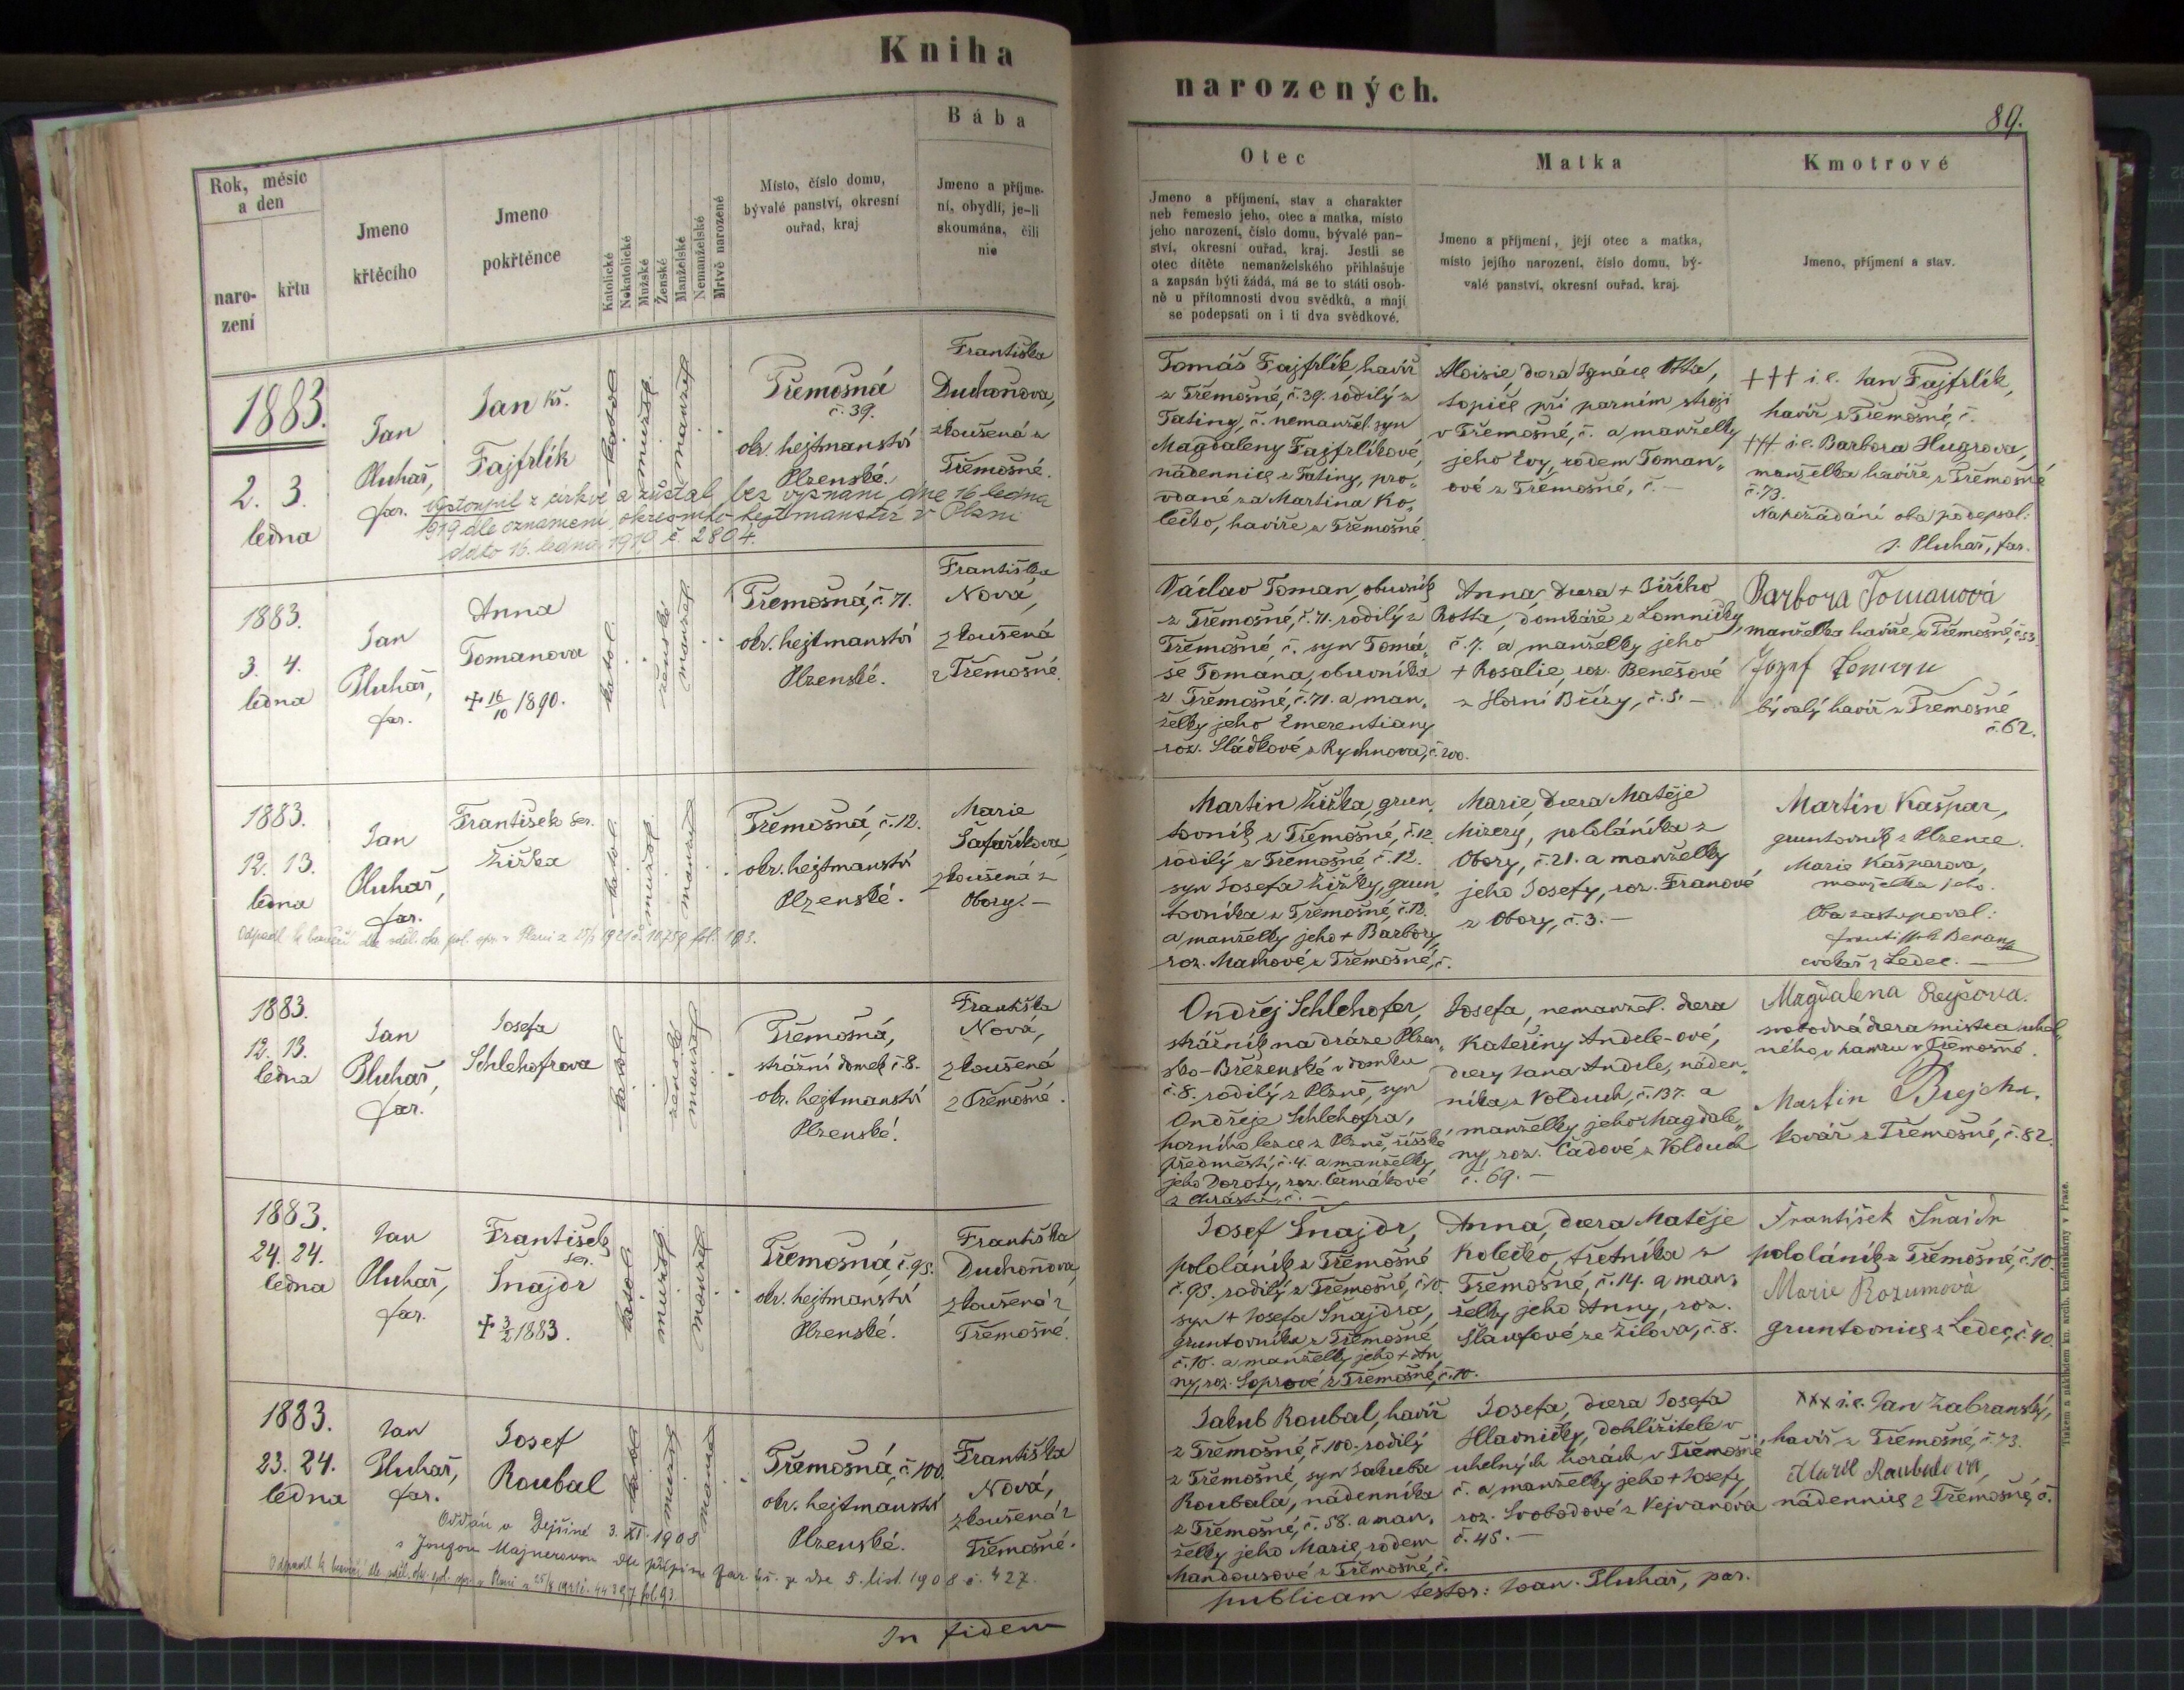 Kniha
Rok, měsíc
a den
naro-
zení
křtu
Jmeno
křtěcího
Jmeno
pokřtěnce
Katolické
Nekatolické
Mužské
Ženské
Manželské
Nemanželské
Mrtvě narozené
Místo, číslo domu,
bývalé panství, okresní
ouřad, kraj
Bába
Jmeno a příjme-
ní, obydlí, je-li
skoumána, čili
nic
1883.
2. 3.
ledna
Jan
Pluhař,
far.
Jan kř.
Fajfrlík
katol.
mužsk.
manžel
Třemošná
č. 39.
okr. hejtmanství
Plzenské.
Františka
Duchoňova,
zkoušená z
Třemošné.
Vystoupil z církve a zůstal bez vyznání dne 16 ledna
1919 dle oznámení okresního hejtmanství v Plzni
ddto 16. ledna 1919 č 2804.
1883.
3. 4.
ledna
Jan
Pluhař,
far.
Anna
Tomanova
+ 16/10 1890.
katol.
ženské
manžel
Třemošná, č. 71.
okr. hejtmanství
Plzenské.
Františka
Nová,
zkoušená
z Třemošné.
1883.
12. 13.
ledna
Jan
Pluhař,
far.
František Ser.
Žižka
katol.
mužsk.
manžel
Třemošná, č. 12.
okr. hejtmanství
Plzenské.
Marie
Šafaříkova,
zkoušená z
Obory. –
1883.
12. 13.
ledna
Jan
Pluhař,
far.
Josefa
Schlehofrova
katol
ženské
manžel
Třemošná,
strážní domek č. 8.
okr. hejtmanství
Plzenské.
Františka
Nová,
zkoušená
z Třemošné.
1883.
24. 24.
ledna
Jan
Pluhař,
far.
František
Ser.
Šnajdr
+ 3/2 1883.
katol
mužsk.
manžel
Třemošná, č. 95.
okr. hejtmanství
Plzenské.
Františka
Duchoňova,
zkoušená z
Třemošné.
1883.
23. 24.
ledna
Jan
Pluhař,
far.
Josef
Roubal
katol
mužsk
manž
Třemošná, č. 100.
okr. hejtmanství
Plzenské.
Františka
Nová,
zkoušená z
Třemošné.
Oddán v Dejšině 3. XI. 1908
In fidem
narozených.
89.
Otec
Jmeno a příjmení, stav a charakter
neb řemeslo jeho, otec a matka, místo
jeho narození, číslo domu, bývalé pan-
ství, okresní ouřad, kraj. Jestli se
otec dítěte nemanželského přihlašuje
a zapsán býti žádá, má se to státi osob-
ně u přítomnosti dvou svědků, a mají
se podepsati on i ti dva svědkové.
Matka
Jmeno a příjmení, její otec a matka,
místo jejího narození, číslo domu, bý-
valé panství, okresní ouřad, kraj.
Kmotrové
Jmeno, příjmení a stav.
Tomáš Fajfrlík, havíř
z Třemošné, č. 39. rodilý z
Tatiny, č. nemanžel. syn
Magdaleny Fajfrlíkové,
nádennice z Tatiny, pro-
vdané za Martina Ko-
lečko, havíře z Třemošné.
Aloisie, dcera Ignáce Otta,
topiče při parním stroji
v Třemošné, č. a manželky
jeho Evy, rodem Toman-
ové z Třemošné, č. –
+++ i. e. Jan Fajfrlík,
havíř z Třemošné, č.
+++ i. e. Barbora Hugrova,
manželka havíře z Třemošné
č. 73.
Na požádání oba podepsal:
J. Pluhař, far.
Václav Toman, obuvník
z Třemošné, č. 71. rodilý z
Třemošné, č. syn Tomá-
še Tomana, obuvníka
z Třemošné, č. 71. a man-
želky jeho Emerentiany
roz. Sládkové z Rychnova, č. 200.
Anna, dcera + Jiřího
Rotta, domkáře z Lomničky,
č. 7. a manželky jeho
+ Rosalie, roz. Benešové
z Horní Břízy, č. 5. –
Barbora Tomanová
manželka havíře z Třemošné, č. 53.
Jozef Toman
bývalý havíř z Třemošné
č. 62.
Martin Žižka, grun-
tovník z Třemošné, č. 12.
rodilý z Třemošné č. 12.
syn Josefa Žižky, grun-
tovníka z Třemošné, č. 12.
a manželky jeho + Barbory,
roz. Machové z Třemošné, č.
Marie, dcera Matěje
Mizery, pololáníka z
Obory, č. 21. a manželky
jeho Josefy, roz. Franové
z Obory, č. 3. –
Martin Kašpar,
gruntovník z Plzence.
Marie Kašparova,
manželka jeho.
Oba zastupoval:
František Beran
cvokař z Ledec. –
Ondřej Schlehofer,
strážník na dráze Plzen-
sko-Březenské v domku
č. 8. rodilý z Plzně, syn
Ondřeje Schlehofra,
horního lezce z Plzně, říšské
předměstí, č. 4. a manželky
jeho Doroty, roz. Čermákové
z Chrástu, č. –
Josefa, nemanžel. dcera
Kateřiny Andrle-ové,
dcery Jana Andrle, náden-
níka z Volduch, č. 137. a
manželky jeho Magdale-
ny, roz. Čadové z Volduch
č. 69. –
Magdalena
svobodná dcera mistra uhel-
ného v hamru v Třemošné.
Martin Brejcha.
kovář z Třemošné, č. 82.
Josef Šnajdr,
pololáník z Třemošné
č. 95. rodilý z Třemošné, č. 10.
syn + Josefa Šnajdra,
gruntovníka z Třemošné
č. 10. a manželky jeho + An-
ny, roz. Soprové z Třemošné, č. 10.
Anna, dcera Matěje
Kolečko, třetníka z
Třemošné, č. 14. a man-
želky jeho Anny, roz.
Šlaufové ze Žilova, č. 8.
František Šnaidr
pololáník z Třemošné, č. 10.
Marie Rozumová
gruntovnice z Ledec, č. 40.
Jakub Roubal, havíř
z Třemošné, č. 100. rodilý
z Třemošné, syn Jakuba
Roubala, nádenníka
z Třemošné, č. 58. a man-
želky jeho Marie, rodem
Mandousové z Třemošné, č.
Josefa, dcera Josefa
Hlavničky, dohlížitele v
uhelných horách v Třemošné,
č. a manželky jeho + Josefy
roz. Svobodové z Vejvanova
č. 45. –
xxx i. e. Jan Zábranský,
havíř z Třemošné, č. 73.
Marie Roubalova,
nádennice z Třemošné, č.
publicam testor: Joan. Pluhař, par.
Tiskem a nákladem kn. arcib. knihtiskárny v Praze.